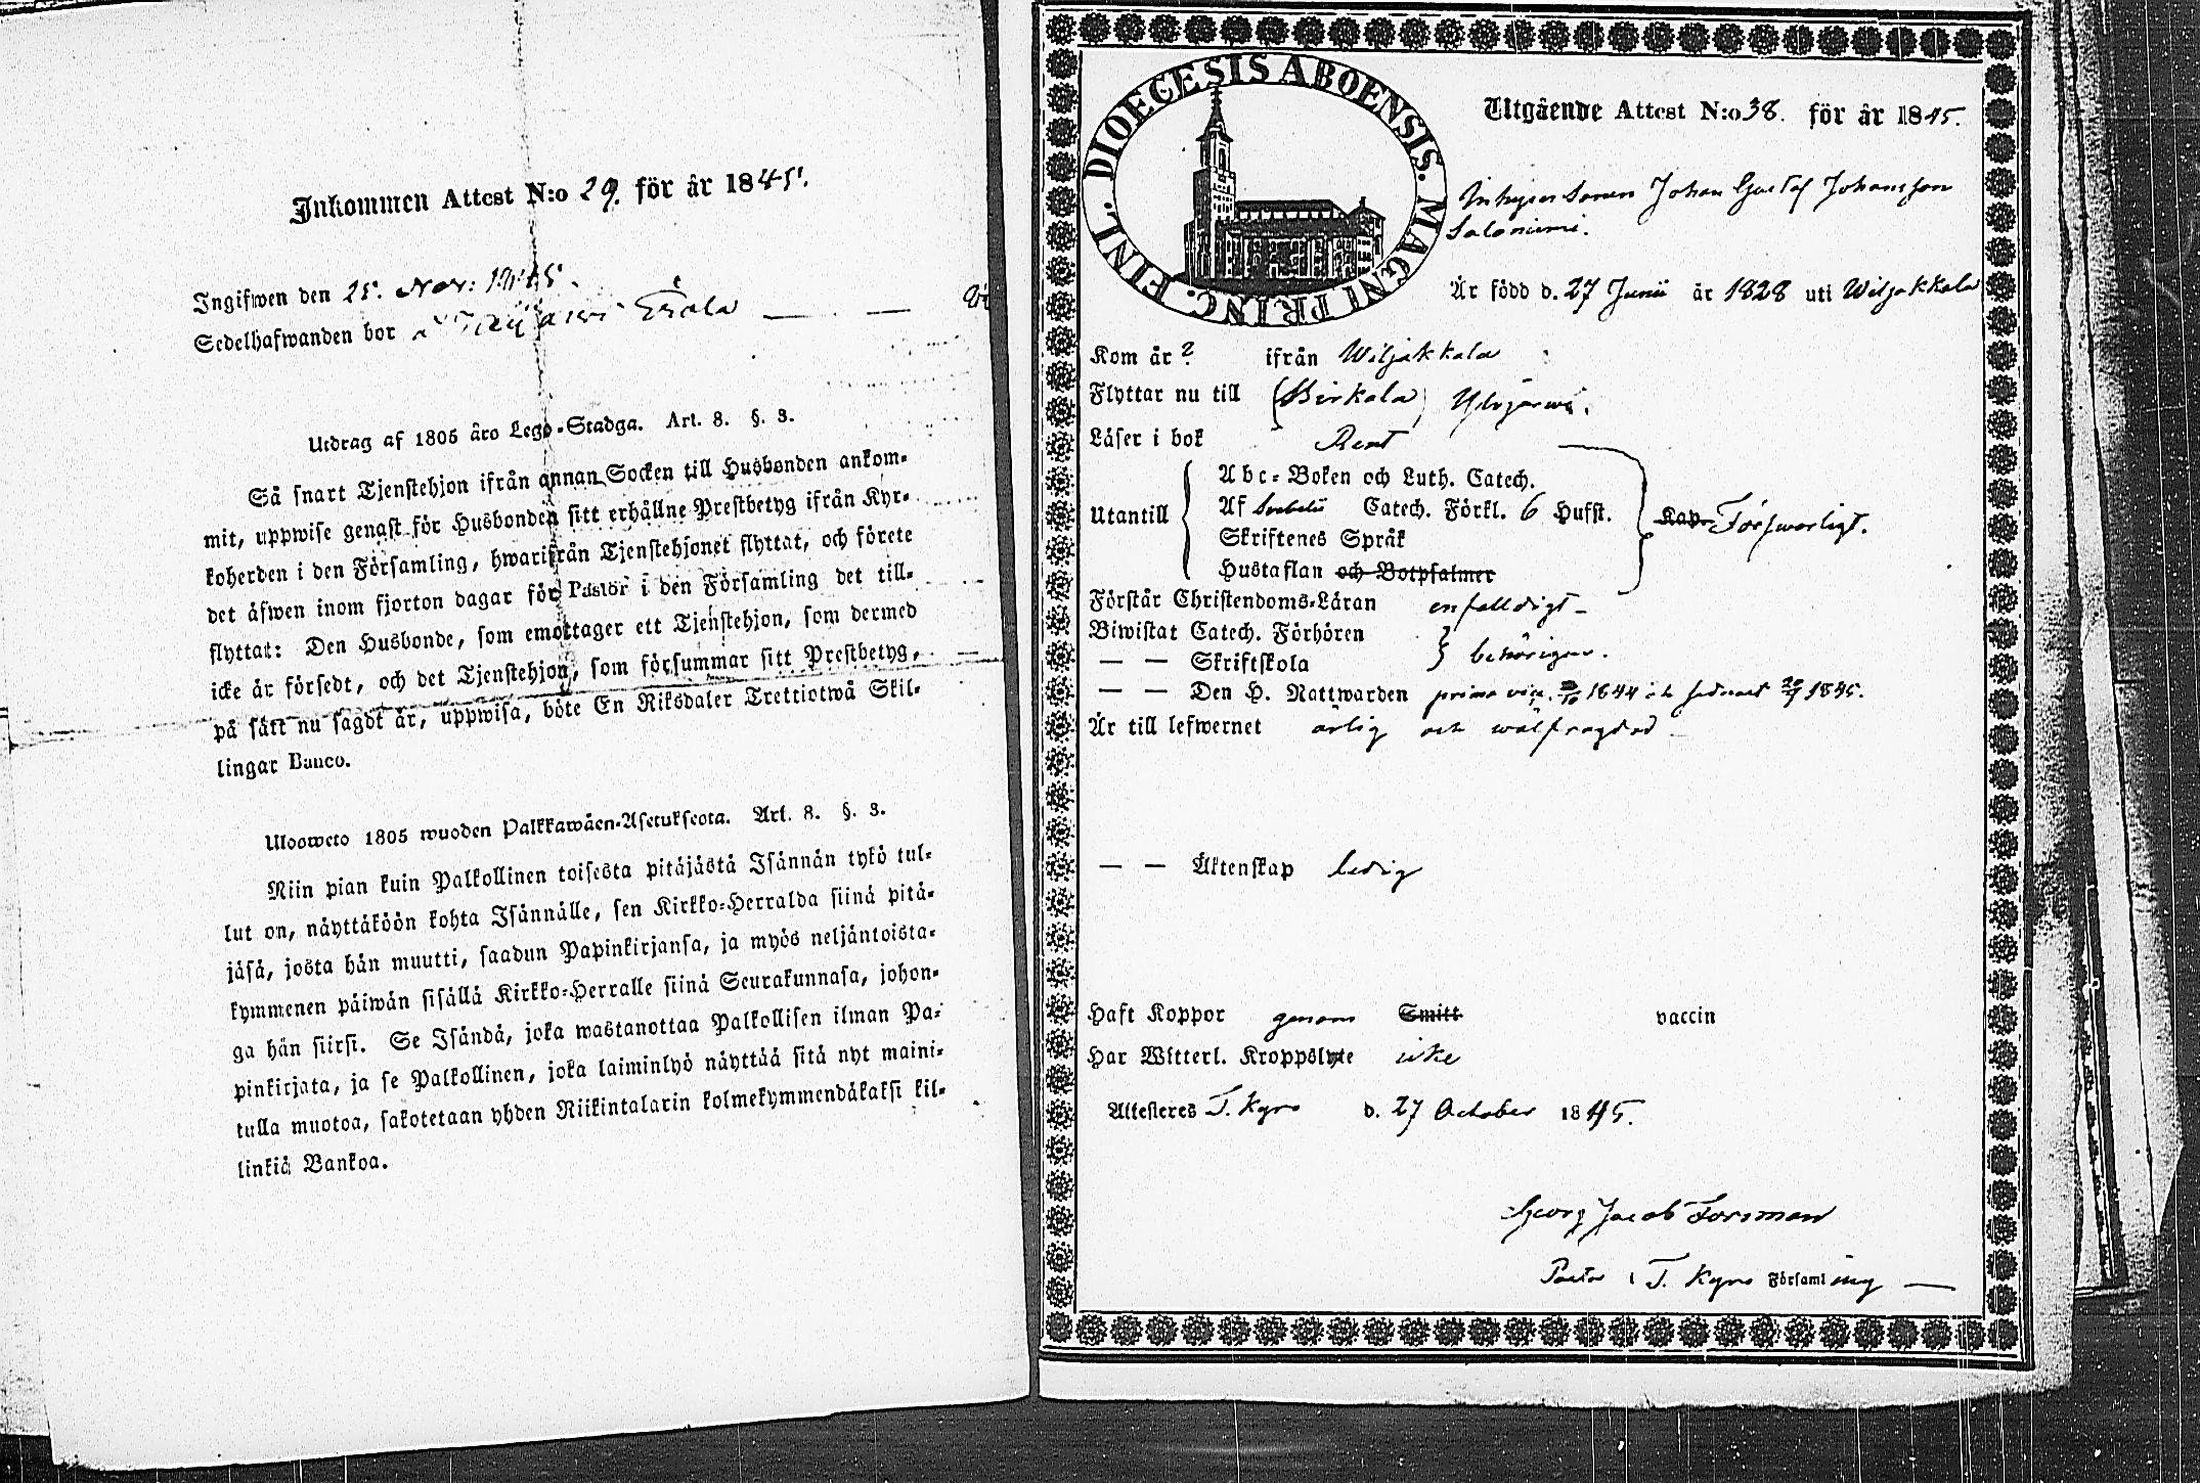 Inkommen Attest N:o 29. för år 1845.
Ingifwen den 25. Nov: 1845.
Sedelhafwanden bor
Utdrag af 1805 års Lego-Stadga. Art. 8. §. 3.
Så snart Tjenstehjon ifrån annan Socken till Husbonden ankom-
mit, uppwise genast för Husbonden sitt erhållne Prestbetyg ifrån Kyr-
koherden i den Församling, hwarifrån Tjenstehjonet flyttat, och förete
det äfwen inom fjorton dagar för Pastor i den Församling det till-
flyttat: Den Husbonde, som emottager ett Tjenstehjon, som dermed
icke är försedt, och det Tjenstehjon, som försummar sitt Prestbetyg,
på sätt nu sagdt är, uppwisa, böte En Riksdaler Trettiotwå Skil-
lingar Banco.
Ulosweto 1805 wuoden Palkkawäen-Asetuksesta. Art. 8. §. 3.
Niin pian kuin Palkollinen toisesta pitäjästä Isännän tykö tul-
lut on, näyttäköön kohta Isännälle, sen Kirkko-Herralda siinä pitä-
jäsä, josta hän muutti, saadun Papinkirjansa, ja myös neljäntoista-
kymmenen päiwän sisällä Kirkko-Herralle siinä Seurakunnasa, johon-
ga hän siirsi. Se Isändä, joka wastanottaa Palkollisen ilman Pa-
pinkirjata, ja se Palkollinen, joka laiminlyö näyttää sitä nyt maini-
tulla muotoa, sakotetaan yhden Riikintalarin kolmekymmendäkaksi kil-
linkiä Bankoa.
FINL. DIOECESIS ABOENSIS. MAGNI PRINC.
Utgående Attest N:o 38. för år 1845.
Inhyses Sonen Johan Gustaf Johansson
Saloniemi.
Är född d. 27 Junii år 1828 uti Wiljakkala
Kom år ? ifrån Wiljakkala
Flyttar nu till (Birkala) Ylöjärwi.
Läser i bok Rent
Utantill
Abc-Boken och Luth. Catech.
Af Svebelii Catech. Förkl. 6 Hufst.
Skriftenes Språk
Hustaflan och Botpsalmer
Förswarligt.
Förstår Christendoms-Läran enfalldigt
Biwistat Catech. Förhören
— — Skriftskola behörigen.
— — Den H. Nattwarden prima vice 1844 och sednast 1845.
Är till lefwernet ärlig och wälfrägdad
— — Äktenskap ledig
Haft Koppor genom Smitt vaccin
Har Witterl. Kroppslyte icke
Attesteres T. Kyro d. 27 October 1845.
Georg Jacob Forsman
Pastor i T. Kyro Församling